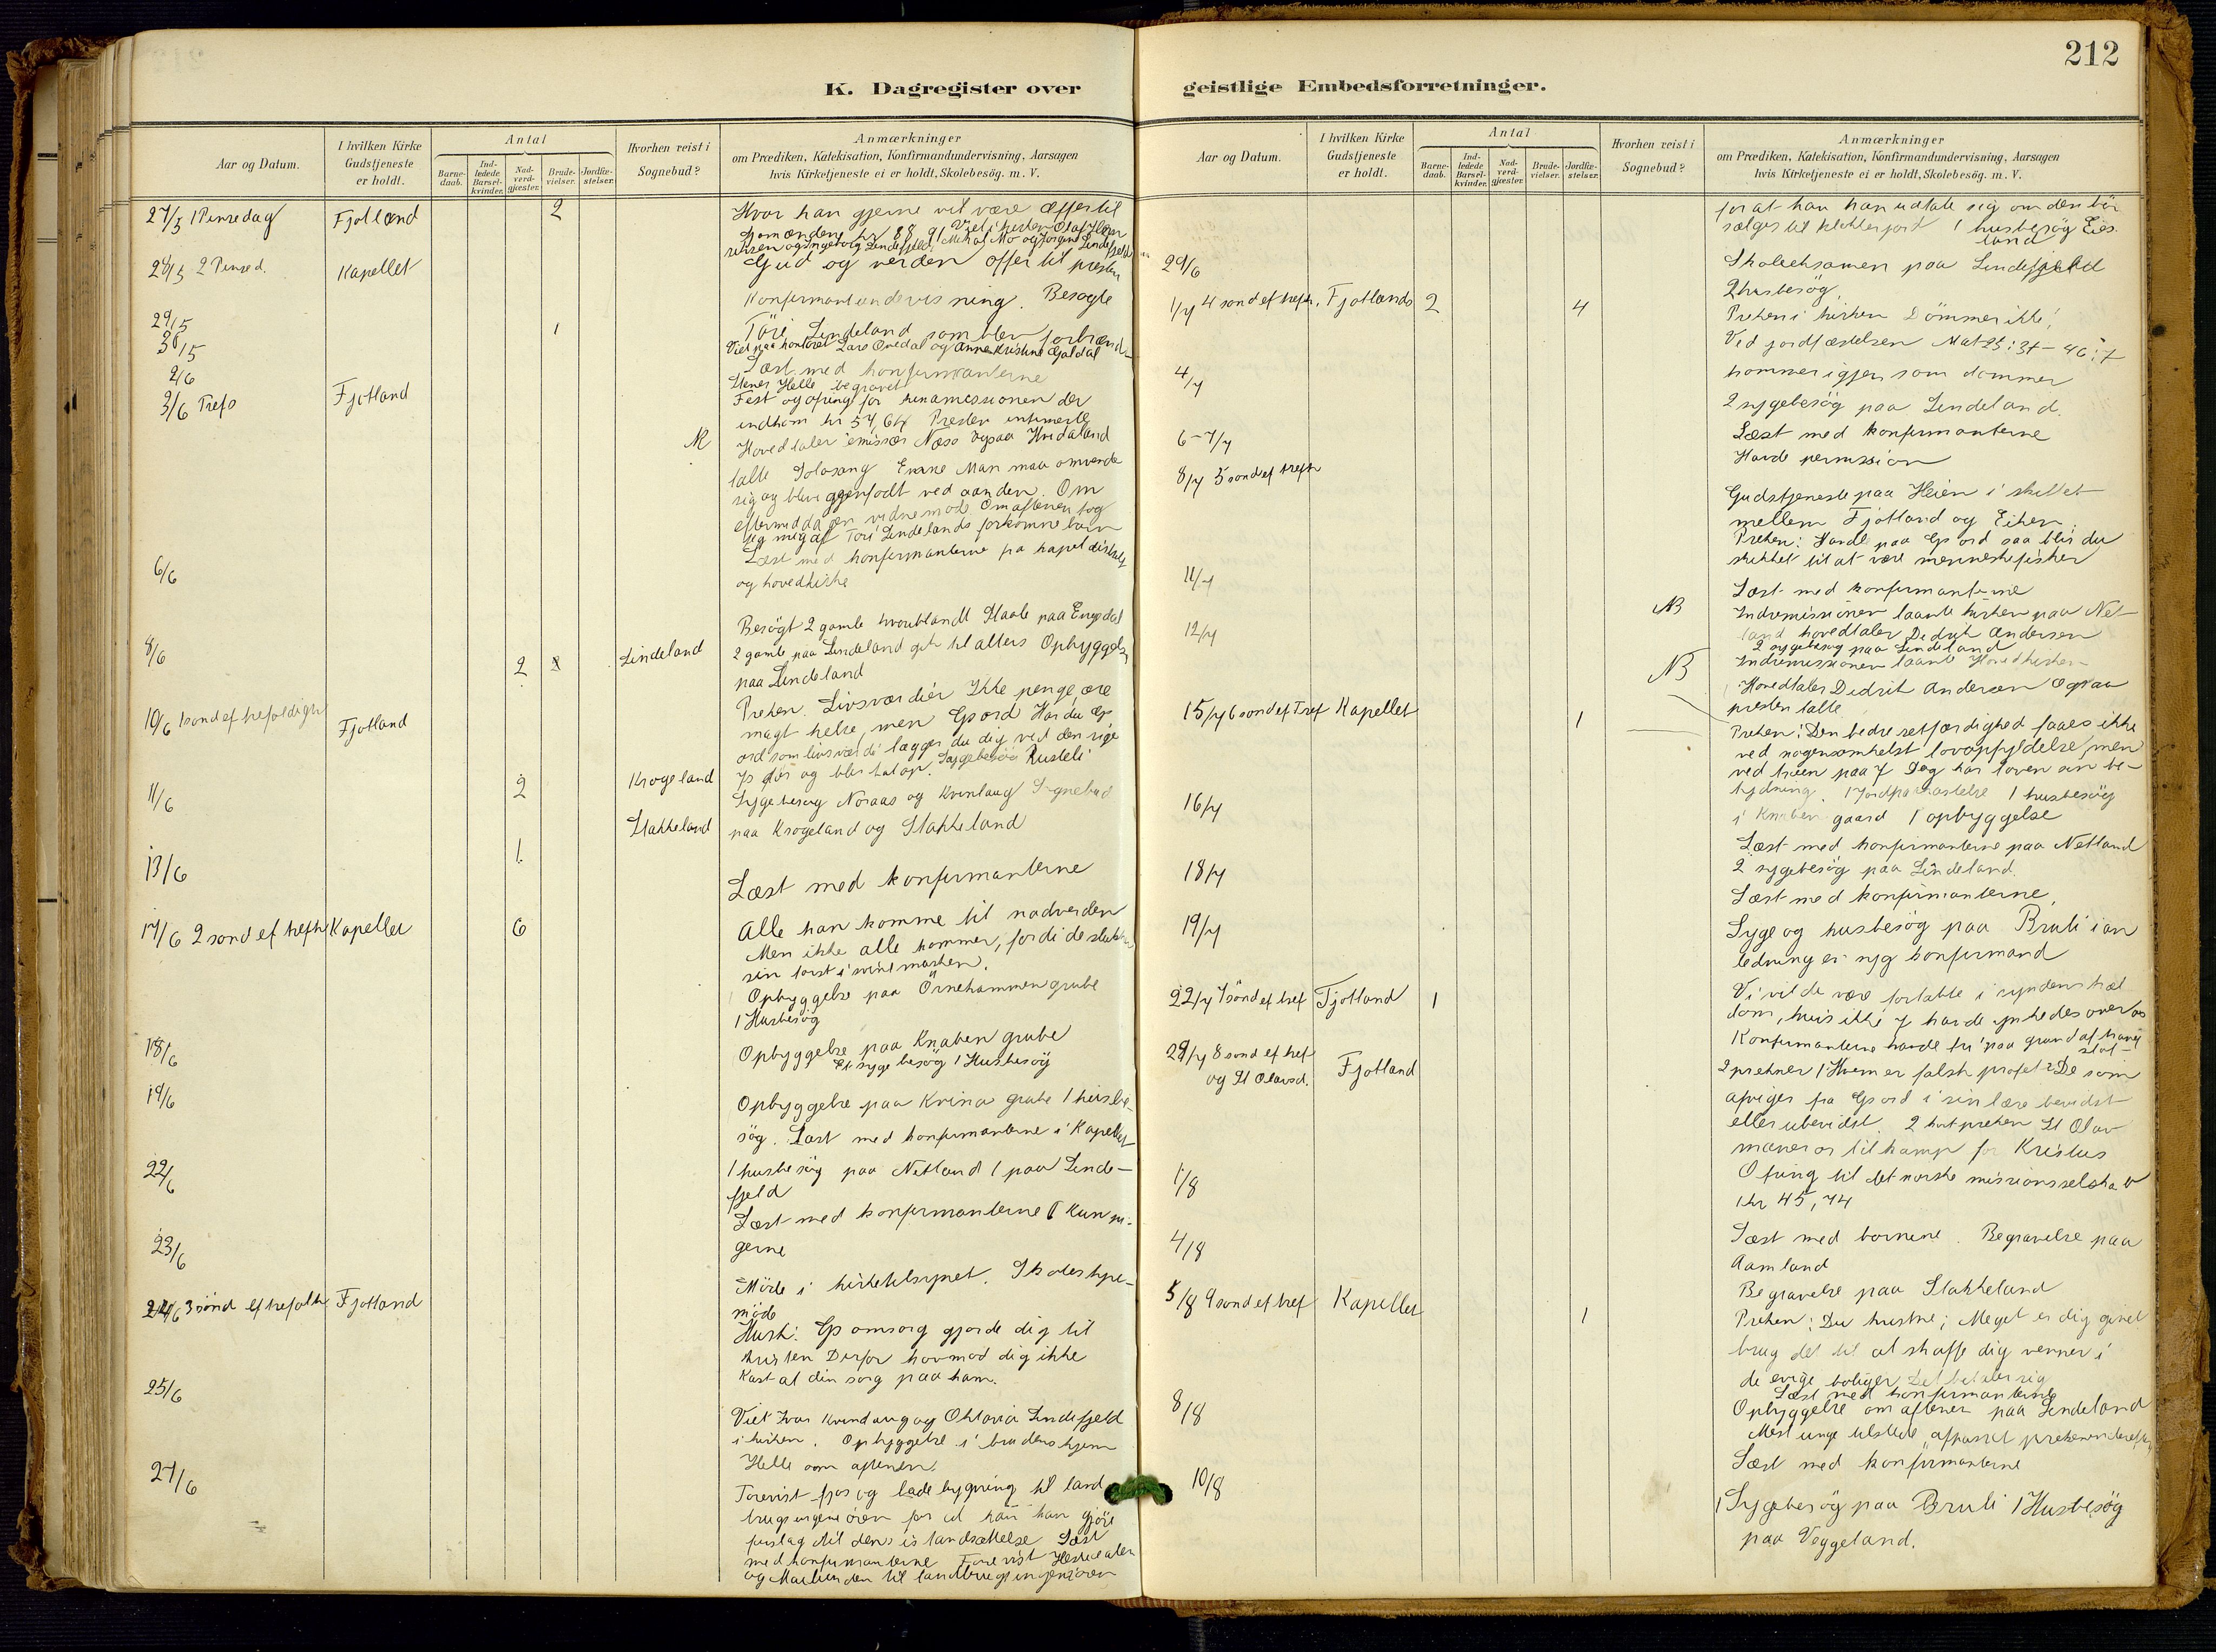 212
K. Dagregister over
geistlige Embedsforretninger.
Aar og Datum.
I hvilken Kirke
Gudstjeneste
er holdt.
Antal
Barne-
daab.
Ind-
ledede
Barsel-
kvinder.
Nad-
verd-
gjæster.
Brude-
vielser.
Jordfæ-
stelser.
Hvorhen reist i
Sognebud?
Anmærkninger
om Prædiken, Katekisation, Konfirmandundervisning, Aarsagen
hvis Kirketjeneste ei er holdt, Skolebesög. m. V.
27/5 1 Pinsedag Fjotland 2 Hvor han gjerne vil være Offer til
28/5 2 Pinsed. Kapellet Gud og verden offer til presten
29/5 Konfirmantundervisning. Besøgte
30/5 1 Töri Lindeland som blev forbrændt
Viet paa kontoret Lars Qvedal og Anne Kristine Gjaldal
2/6 Læst med konfirmanterne
Helle begravet
3/6 Trefo Fjotland Fest og ofring for kinamissionen der
indkom kr 54,64 Presten
Hovedtaler emissær Næss ogsaa Hvidaland
talte Solosang Emne Man maa omvende
sig og blive gjenfødt ved aanden. Om
eftermiddagen vidnemøde Om aftenen tog
jeg mig af Töri Lindelands forkomne barn
6/6 Læst med konfirmanterne fra kapeldistriktet
og hovedkirke
8/6 Besögt 2 gamle Staale paa Engedal
2 Lindeland 2 gamle paa Lindeland gik til alters Opbyggelse
paa Lindeland
10/6 1 sond ef trefoldigh Fjotland Preken. Livsværdier Ikke penge, ære
magt helse, men Gs ord Har du Gs
ord som livsværdi lægger du dig ved den rige
Sygebesög Rusteli
11/6 2 Krogeland Sygebesög Noraas og Kvinlaug Sognebud
Stakkeland paa Krogeland og Stakkeland
1
13/6 Læst med konfirmanterne
17/6 2 sond ef trefh Kapellet 6 Alle kan komme til nadverden
Men ikke alle kommer, fordi de slukker
sin torst i
Opbyggelse paa Örnehammen grube
1 Husbesög
18/6 Opbyggelse paa Knaben grube
Et syge besög 1 Husbesög
19/6 Opbyggelse paa Kvina grube 1 husbe-
sög. Læst med konfirmanterne i Kapellet
22/6 1 husbesög paa Netland 1 paa Linde-
fjeld
Læst med konfirmanterne Kun pi-
gerne
23/6 Möde i kirketilsynet. Skolestyre-
möde
24/6 3 sönd ef trefoldh Fjotland Husk: Gs omsorg gjorde dig til
kristen Derfor hovmod dig ikke
Kast al din sorg paa ham.
25/6 Viet Ivar Kvinlaug og Oktavia Lindefjeld
i kirken. Opbyggelse i brudens hjem
Helle om aftenen.
27/6 Forevist fjøs og ladebygning til land
brugsingeniören for at han kan gjöre
forslag til dens istandsættelse Læst
med konfirmanterne Forevist
til landbrugsingeniören
Aar og Datum.
I hvilken Kirke
Gudstjeneste
er holdt.
Antal
Barne-
daab.
Ind-
ledede
Barsel-
kvinder.
Nad-
verd-
gjæster.
Brude-
vielser.
Jordfæ-
stelser.
Hvorhen reist i
Sognebud?
Anmærkninger
om Prædiken, Katekisation, Konfirmandundervisning, Aarsagen
hvis Kirketjeneste ei er holdt, Skolebesög. m. V.
for at han kan udtale sig om den bör
sælges til klokkerjord 1 husbesög Eies-
land
29/6 Skoleeksamen paa Lindefjeld
2 husbesög
1/7 4 sond ef trefh. Fjotlands 2 4 Preken i kirken Dömmer ikke!
Ved jordfæstelsen Mat 25:31-46:
kommer igjen som dommer
4/7 2 sygebesög paa Lindeland.
Læst med konfirmanterne
6-7/7 Havde permission
8/7 5 sond ef trefh Gudstjeneste paa Heien i skillet
mellem Fjotland og Eiken.
Preken: Handl paa Gs ord saa blir du
skikket til at være menneskefisker
11/7 Læst med konfirmanterne
12/7 NB Indremissionen laante kirken paa Net-
land hovedtaler Didrik Andersen
2 sygebesög paa Lindeland
NB Indremissionen laante Hovedkirken
Hovedtaler Didrik Andersen Ogsaa
presten talte
15/7 6 sond ef Tref Kapellet 1 Preken: Den bedre retfærdighed faaes ikke
ved nogensomhelst lovopfyldelse, men
ved troen paa J Dog har loven sin be-
tydning. 1 Jordpaakastelse 1 husbesög
i Knaben gaard 1 opbyggelse
16/7 Læst med konfirmanterne paa Netland
2 sygebesög paa Lindeland.
18/7 Læst med konfirmanterne,
19/7 Syge og husbesög paa Bruli i an
ledning en syg konfirmand
22/7 7 sönd ef tref Fjotland 1 Vi vilde være fortabte i syndens træl
dom, hvis ikke J havde ynkedes over os
Konfirmanterne havde fri paa grund af travl
slot-
29/7 8 sond ef tref
og St Olavsd. Fjotland 2 prekner 1 Hvem er falsk profet? De som
afviger fra Gs ord i sin lære bevidst
eller ubevidst. 2 preken St Olav
maner os til kamp for Kristus
Ofring til det norske missionsselskab
kr 45,74
1/8
4/8 Læst med bornene. Begravelse paa
Aamland
Begravelse paa Stakkeland
5/8 9 sond ef tref Kapellet 1 Preken: Du kristne; Meget er dig givet
brug det til at skaffe dig venner i
de evige boliger Det betaler sig
Læst med konfirmanterne
8/8 Opbyggelse om aftenen paa Lindeland
Mest unge tilstede, afpasset prekenen derefter
Læst med konfirmanterne
10/8 1 Sygebesög paa Bruli 1 Husbesög
paa Veggeland.